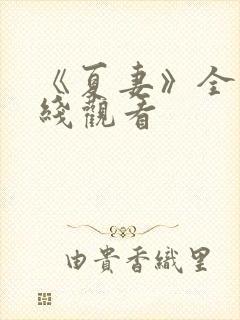 《夏妻》全
綫觀看
由貴香織里